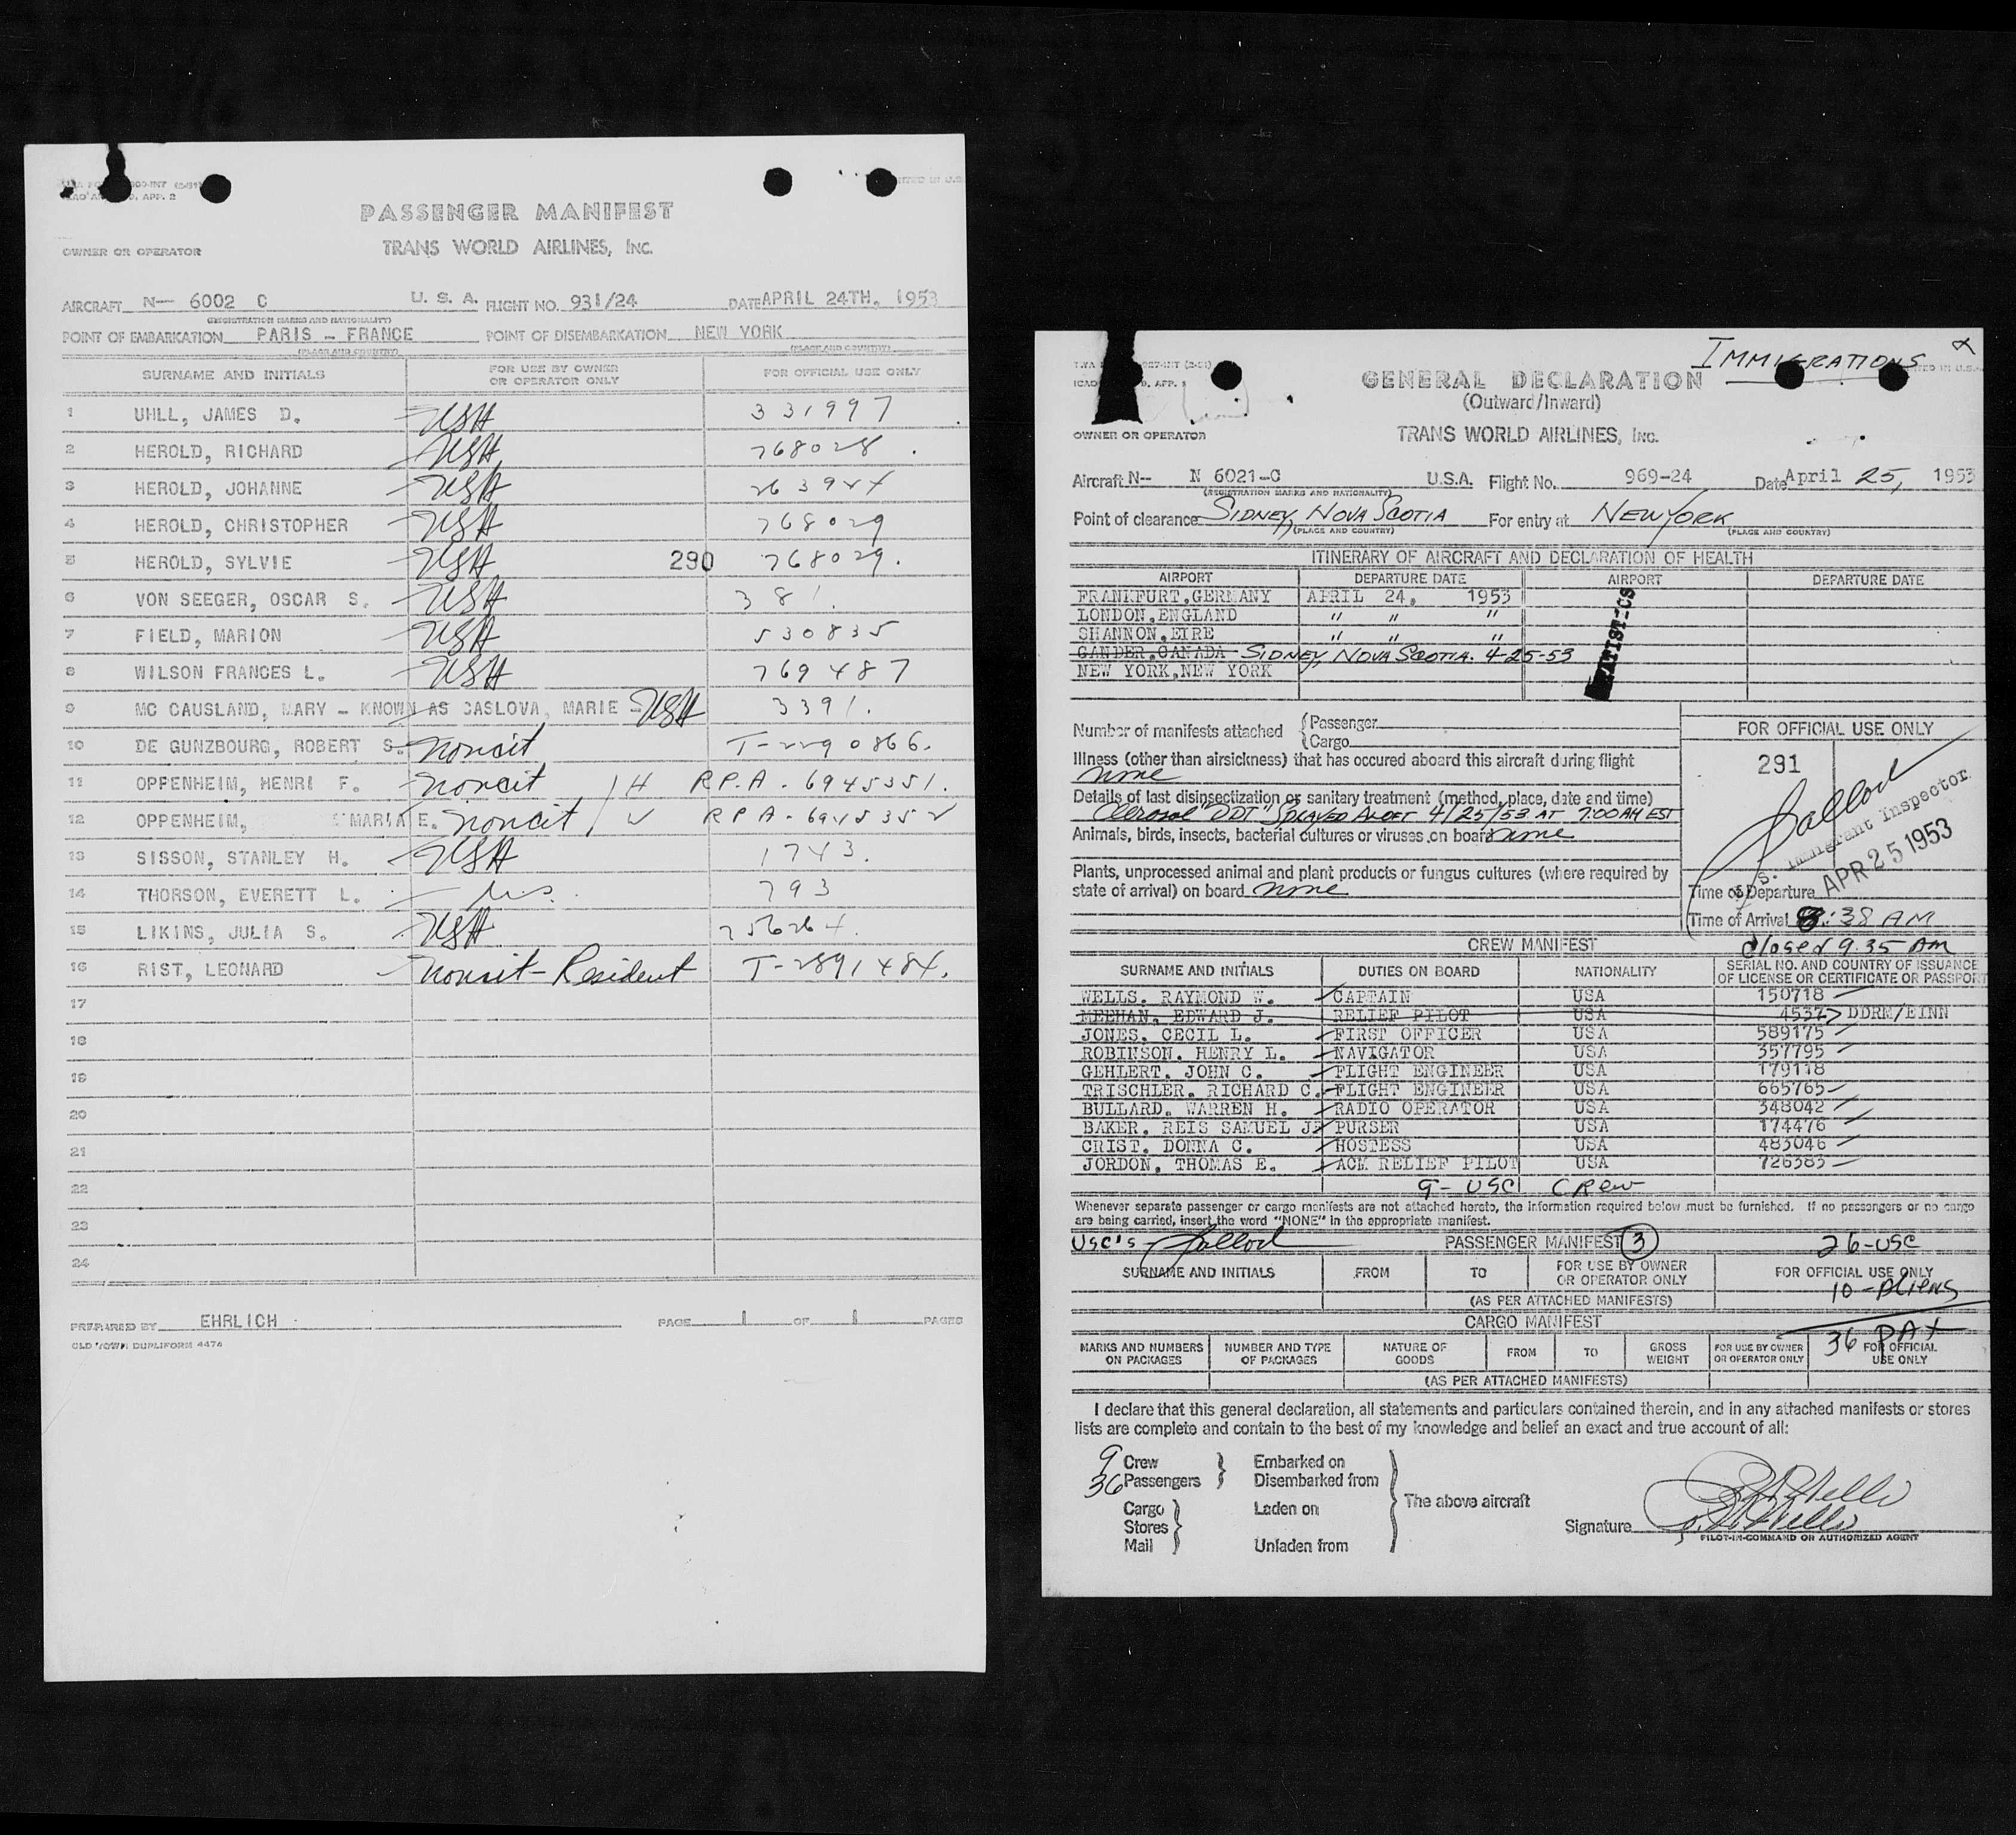 PASSENGER MANIFEST
OWNER OR OPERATOR TRANS WORLD AIRLINES, INC.
AIRCRAFT N— 6002 C U. S. A. FLIGHT NO. 931/24 DATE APRIL 24TH, 1953
(REGISTRATION MARKS AND NATIONALITY)
POINT OF EMBARKATION PARIS – FRANCE POINT OF DISEMBARKATION NEW YORK
(PLACE AND COUNTRY) (PLACE AND COUNTRY)
SURNAME AND INITIALS FOR USE BY OWNER OR OPERATOR ONLY FOR OFFICIAL USE ONLY
1 UHLL, JAMES D. USA 331997
2 HEROLD, RICHARD USA 768028
3 HEROLD, JOHANNE USA
4 HEROLD, CHRISTOPHER USA 768029
5 HEROLD, SYLVIE USA 290 768029.
6 VON SEEGER, OSCAR S. USA 381.
7 FIELD, MARION USA 530835
8 WILSON FRANCES L. USA 769487
9 MC CAUSLAND, MARY – KNOWN AS CASLOVA, MARIE – USA 3391.
10 DE GUNZBOURG, ROBERT S. noncit T-2290866.
11 OPPENHEIM, HENRI F. noncit / H R.P.A. - 6945351.
12 OPPENHEIM, MARIA E. noncit / W R P A - 6945352
13 SISSON, STANLEY H. USA 1743.
14 THORSON, EVERETT L. 793
15 LIKINS, JULIA S. USA 256264.
16 RIST, LEONARD noncit-Resident T-2891484.
17
18
19
20
21
22
23
24
PREPARED BY EHRLICH PAGE 1 OF 1 PAGES
OLD TOWN DUPLIFORM 4476
IMMIGRATIONS
GENERAL DECLARATION
(Outward/Inward)
OWNER OR OPERATOR TRANS WORLD AIRLINES, INC.
Aircraft N-- N 6021-C U.S.A. Flight No. 969-24 Date April 25, 1953
(REGISTRATION MARKS AND NATIONALITY)
Point of clearance SIDNEY, NOVA SCOTIA For entry at NEW YORK
(PLACE AND COUNTRY) (PLACE AND COUNTRY)
ITINERARY OF AIRCRAFT AND DECLARATION OF HEALTH
AIRPORT DEPARTURE DATE AIRPORT DEPARTURE DATE
FRANKFURT, GERMANY APRIL 24, 1953
LONDON, ENGLAND " " "
SHANNON, EIRE " " "
GANDER, CANADA SIDNEY, NOVA SCOTIA. 4-25-53
NEW YORK, NEW YORK
Number of manifests attached { Passenger
Cargo
FOR OFFICIAL USE ONLY
291
Illness (other than airsickness) that has occured aboard this aircraft during flight
none
Details of last disinsectization or sanitary treatment (method, place, date and time)
Aerosol "DDT" SPRAYED ALOFT 4/25/53 AT 7:00 AM EST
Animals, birds, insects, bacterial cultures or viruses on board none
Plants, unprocessed animal and plant products or fungus cultures (where required by
state of arrival) on board none
U. S. Immigrant Inspector
APR 25 1953
Time of Departure
Time of Arrival 8:38 AM
closed 9.35 AM
CREW MANIFEST
SURNAME AND INITIALS DUTIES ON BOARD NATIONALITY SERIAL NO. AND COUNTRY OF ISSUANCE OF LICENSE OR CERTIFICATE OR PASSPORT
WELLS, RAYMOND W. CAPTAIN USA 150718
MEEHAN, EDWARD J. RELIEF PILOT USA 4537 DDRM/EINN
JONES, CECIL L. FIRST OFFICER USA 589175
ROBINSON, HENRY L. NAVIGATOR USA 357795
GEHLERT, JOHN C. FLIGHT ENGINEER USA 179118
TRISCHLER, RICHARD C. FLIGHT ENGINEER USA 665765
BULLARD, WARREN H. RADIO OPERATOR USA 348042
BAKER, REIS SAMUEL J. PURSER USA 174476
CRIST, DONNA C. HOSTESS USA 483046
JORDON, THOMAS E. ACM RELIEF PILOT USA 726383
9- USC CREW
Whenever separate passenger or cargo manifests are not attached hereto, the information required below must be furnished. If no passengers or no cargo
are being carried, insert the word "NONE" in the appropriate manifest.
USC's PASSENGER MANIFEST 3 26-USC
SURNAME AND INITIALS FROM TO FOR USE BY OWNER OR OPERATOR ONLY FOR OFFICIAL USE ONLY
10-Aliens
(AS PER ATTACHED MANIFESTS)
CARGO MANIFEST
36 PAX
MARKS AND NUMBERS ON PACKAGES NUMBER AND TYPE OF PACKAGES NATURE OF GOODS FROM TO GROSS WEIGHT FOR USE BY OWNER OR OPERATOR ONLY FOR OFFICIAL USE ONLY
(AS PER ATTACHED MANIFESTS)
I declare that this general declaration, all statements and particulars contained therein, and in any attached manifests or stores
lists are complete and contain to the best of my knowledge and belief an exact and true account of all:
9 Crew Embarked on
36 Passengers Disembarked from
Cargo Laden on The above aircraft
Stores
Mail Unladen from
Signature
PILOT-IN-COMMAND OR AUTHORIZED AGENT